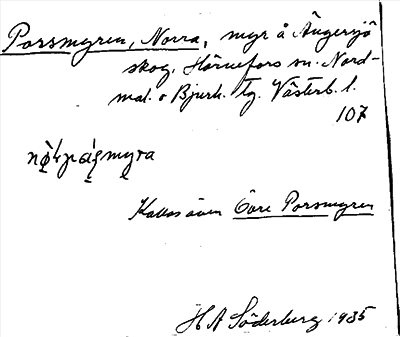 Porsmyren, Norra, myr å Ängersjö
skog, Hörnefors sn. Nord-
mal. o Bjurh. tg. Västerb. l.
107
Kallas även Övre Porsmyren
H A Söderberg 1935